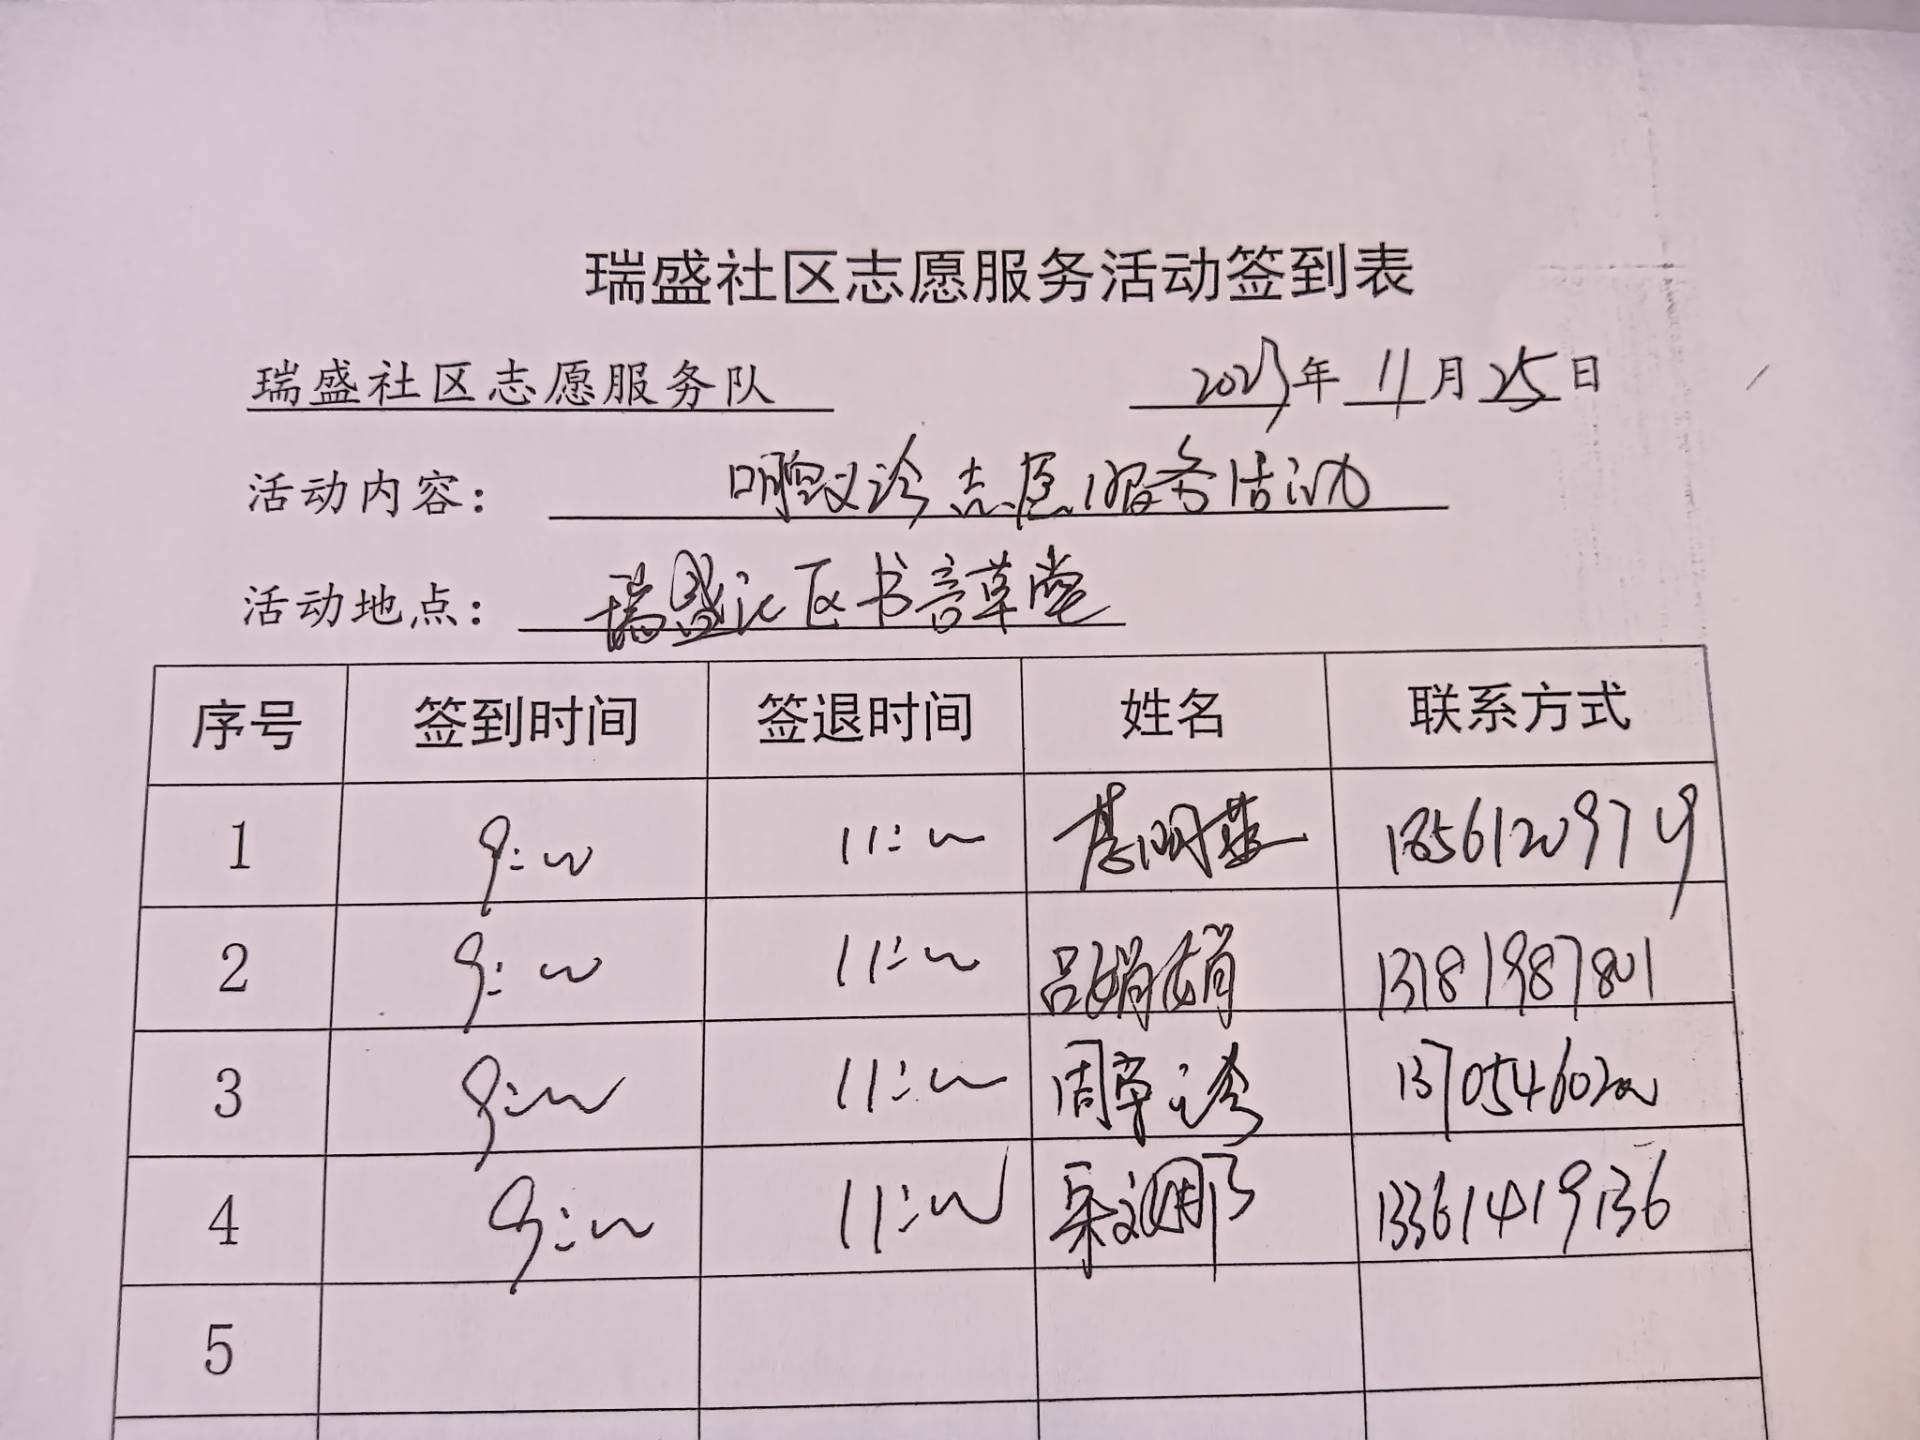 瑞盛社区志愿服务活动签到表
瑞盛社区志愿服务队 2023年 11月 25日
活动内容： 口腔义诊志愿服务活动
活动地点： 瑞盛社区书音草堂
序号 签到时间 签退时间 姓名 联系方式
1 9:00 11:00 明 
2 9:00 11:00 吕娟娟 13181987801
3 9:00 11:00 周草 
4 9:00 11:00 文 13361419136
5